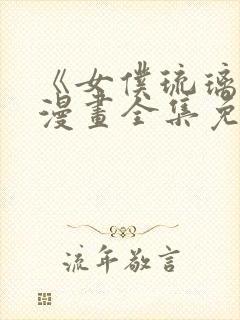 《女僕琉璃
漫畫全集免
流年敬言